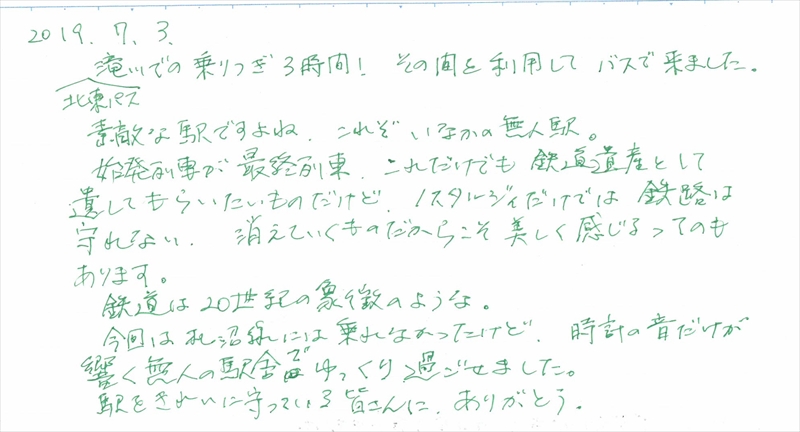 2019.7.3.
滝川での乗りつぎ3時間! その間を利用して バスで来ました。
北東パス
素敵な駅ですよね。これぞ いなかの無人駅。
始発列車が最終列車。これだけでも 鉄道遺産として
遺してもらいたいものだけど、ノスタルジィだけでは 鉄路は
守れない。 消えていくものだからこそ 美しく感じるってのも
あります。
鉄道は20世紀の象徴のような。
今回は札沼線には乗れなかったけど、時計の音だけが
響く無人の駅舎で ゆっくり過ごせました。
駅をきれいに守っている皆さんに、ありがとう。